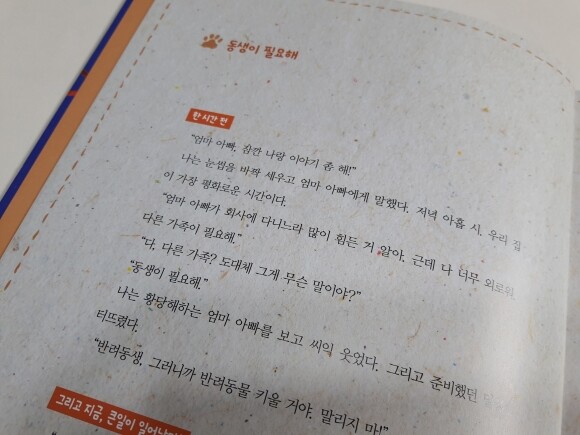 동생이 필요해
한 시간 전
“엄마 아빠, 잠깐 나랑 이야기 좀 해!”
나는 눈썹을 바짝 세우고 엄마 아빠에게 말했다. 저녁 아홉 시. 우리 집
이 가장 평화로운 시간이다.
“엄마 아빠가 회사에 다니느라 많이 힘든 거 알아. 근데 나 너무 외로워.
다른 가족이 필요해.”
“다, 다른 가족? 도대체 그게 무슨 말이야?”
“동생이 필요해.”
나는 황당해하는 엄마 아빠를 보고 씨익 웃었다. 그리고 준비했던
터뜨렸다.
“반려동생, 그러니까 반려동물 키울 거야. 말리지 마!”
그리고 지금, 큰일이